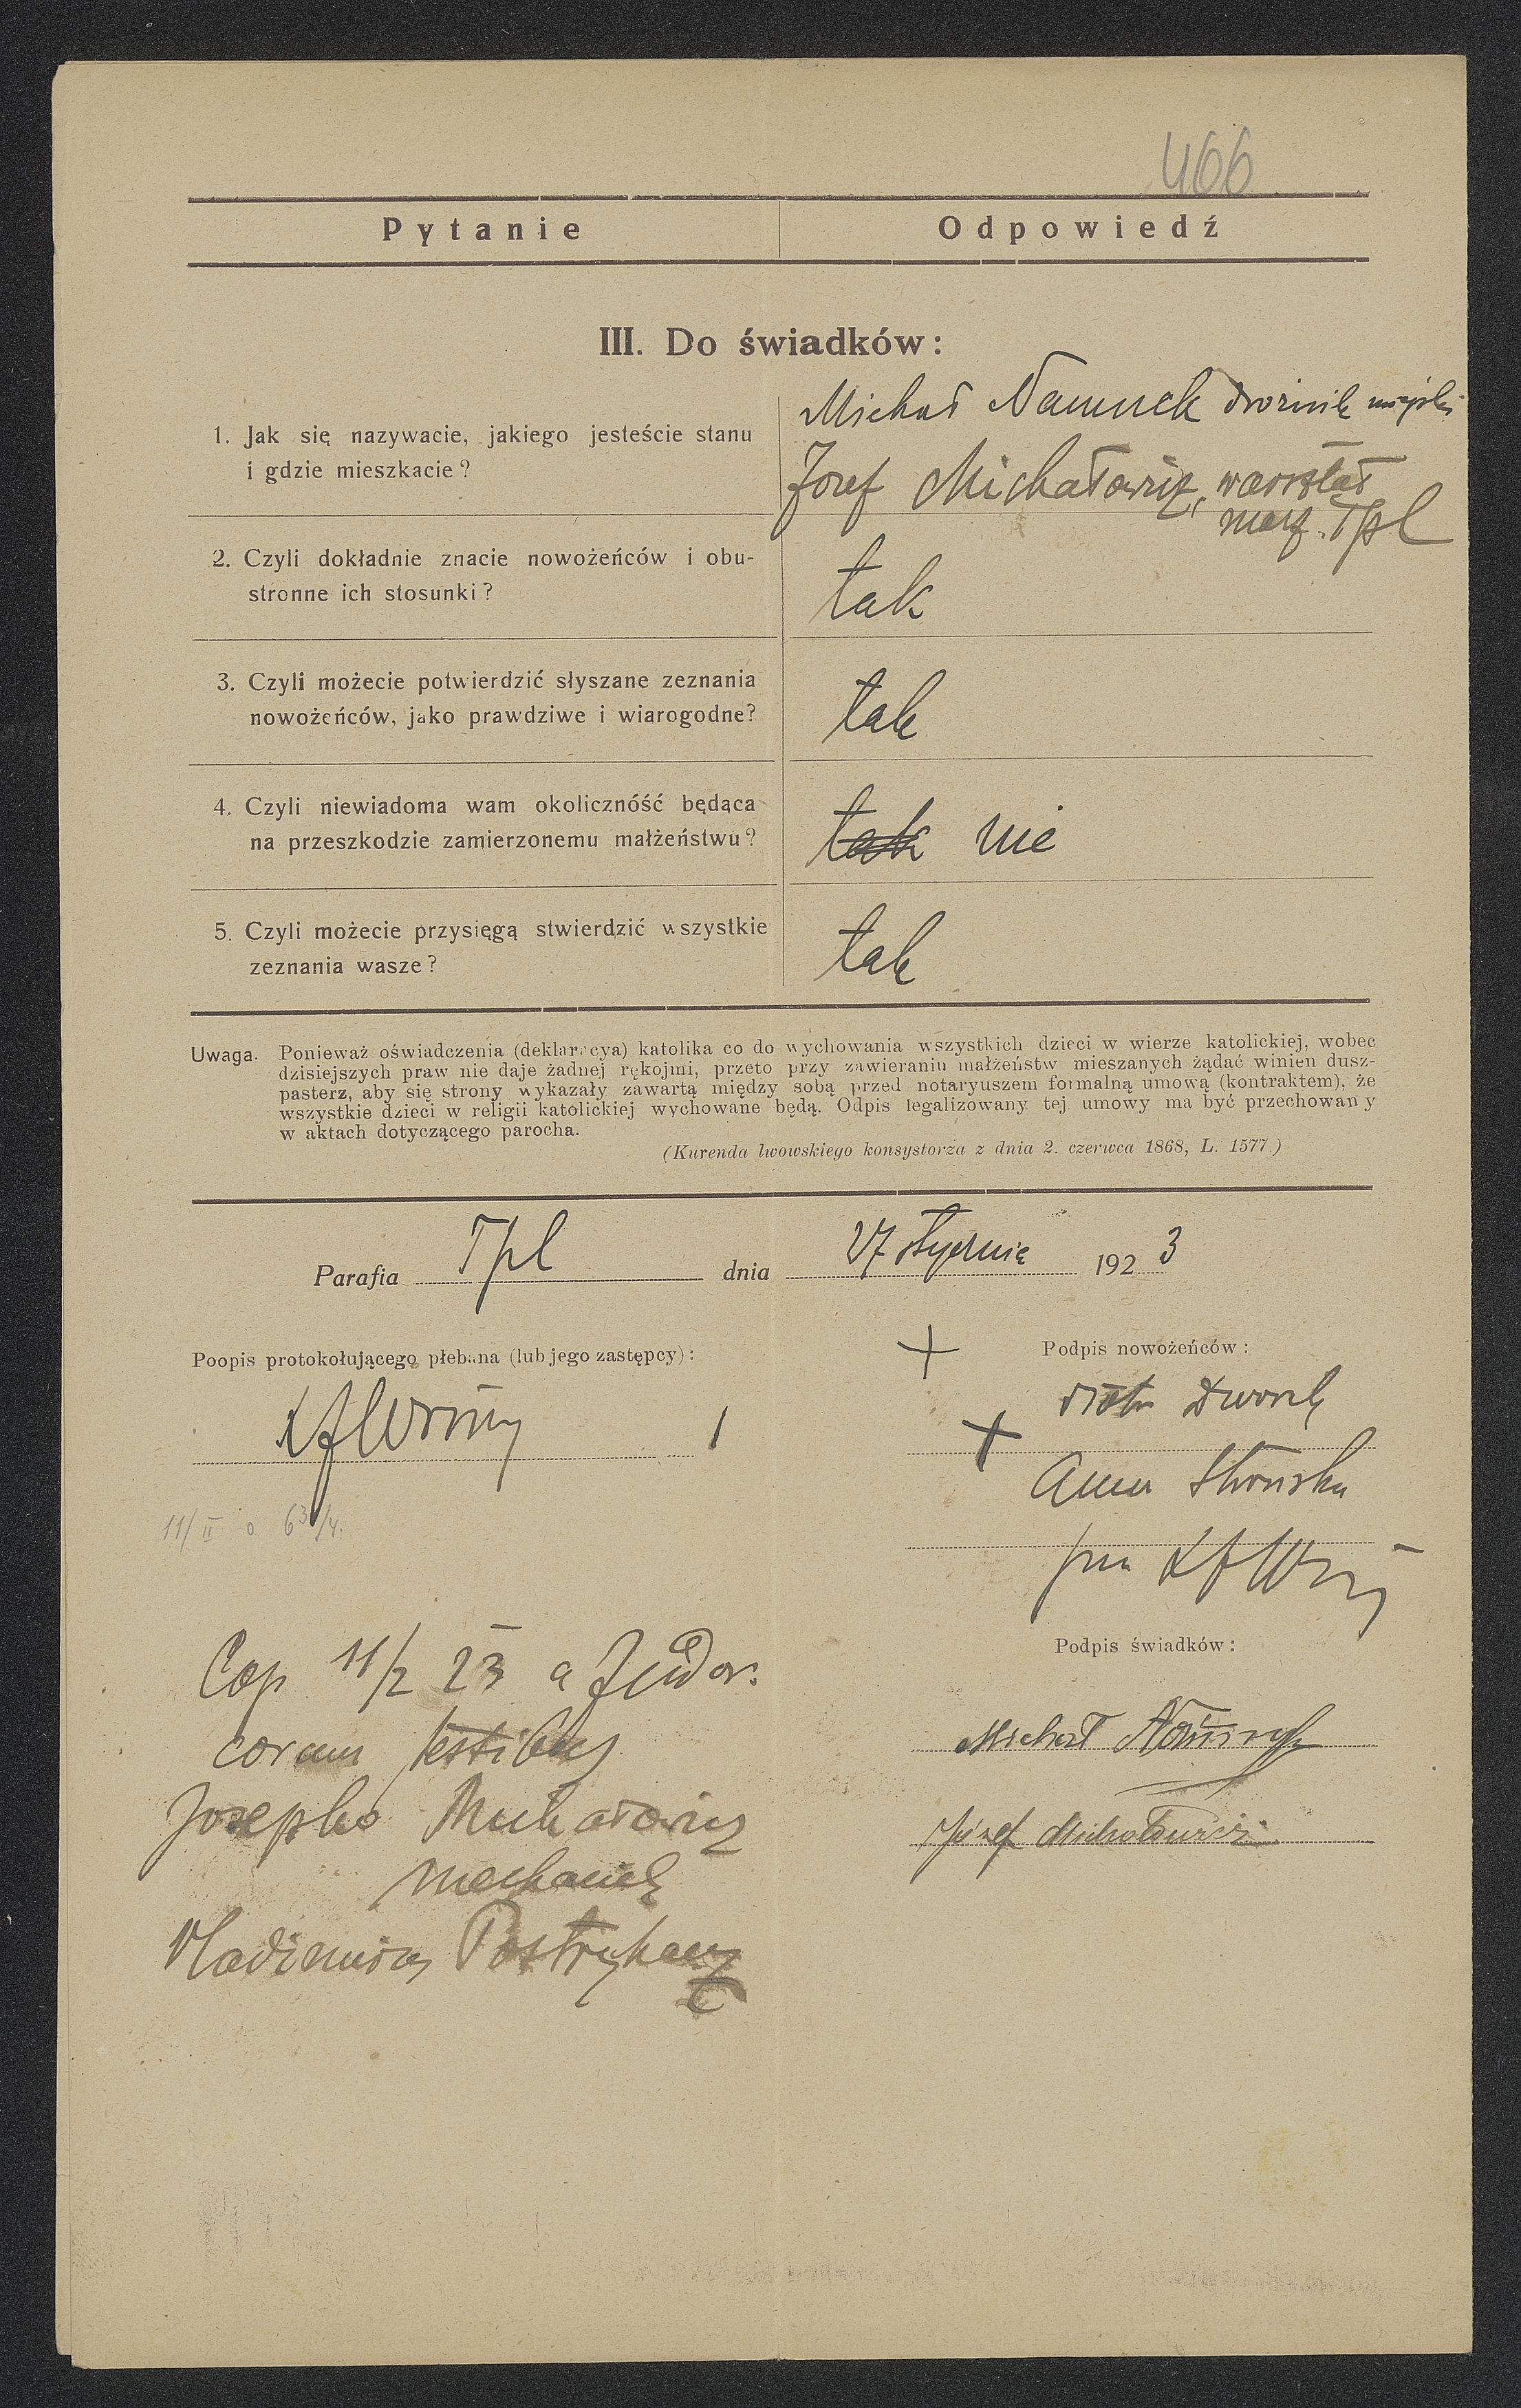 466
Pytanie
Odpowiedź
III. Do świadków:
1. Jak się nazywacie, jakiego jesteście stanu
i gdzie mieszkacie?
Michał dróżnik miejski
Józef Michałowicz, warsztat
Tpl
2. Czyli dokładnie znacie nowożeńców i obu-
stronne ich stosunki?
tak
3. Czyli możecie potwierdzić słyszane zeznania
nowożeńców, jako prawdziwe i wiarogodne?
tak
4. Czyli niewiadoma wam okolicznóść będąca
na przeszkodzie zamierzonemu małżeństwu?
tak nie
5. Czyli możecie przysięgą stwierdzić wszystkie
zeznania wasze?
tak
Uwaga. Ponieważ oświadczenia (deklaracya) katolika co do wychowania wszystkich dzieci w wierze katolickiej, wobec
dzisiejszych praw nie daje żadnej rękojmi, przeto przy zawieraniu małżeństw mieszanych żądać winien dusz-
pasterz, aby się strony wykazały zawartą między sobą przed notaryuszem formalną umową (kontraktem), że
wszystkie dzieci w religii katolickiej wychowane będą. Odpis legalizowany tej umowy ma być przechowany
w aktach dotyczącego parocha.
(Kurenda lwowskiego konsystorza z dnia 2. czerwca 1868, L. 1577)
Parafia Tpl dnia 27 stycznia 1923
Poopis protokołującego plebana (lub jego zastępcy):
+ Podpis nowożeńców:
Piotr Dworsk
+
Anna Słońska
11/II o 6 3/4.
Podpis świadków:
Cop 11/2 23 a
coram testibus
Josepho Michałowicz
mechanik
Vladimiro
Michał
Józef Michałowicz